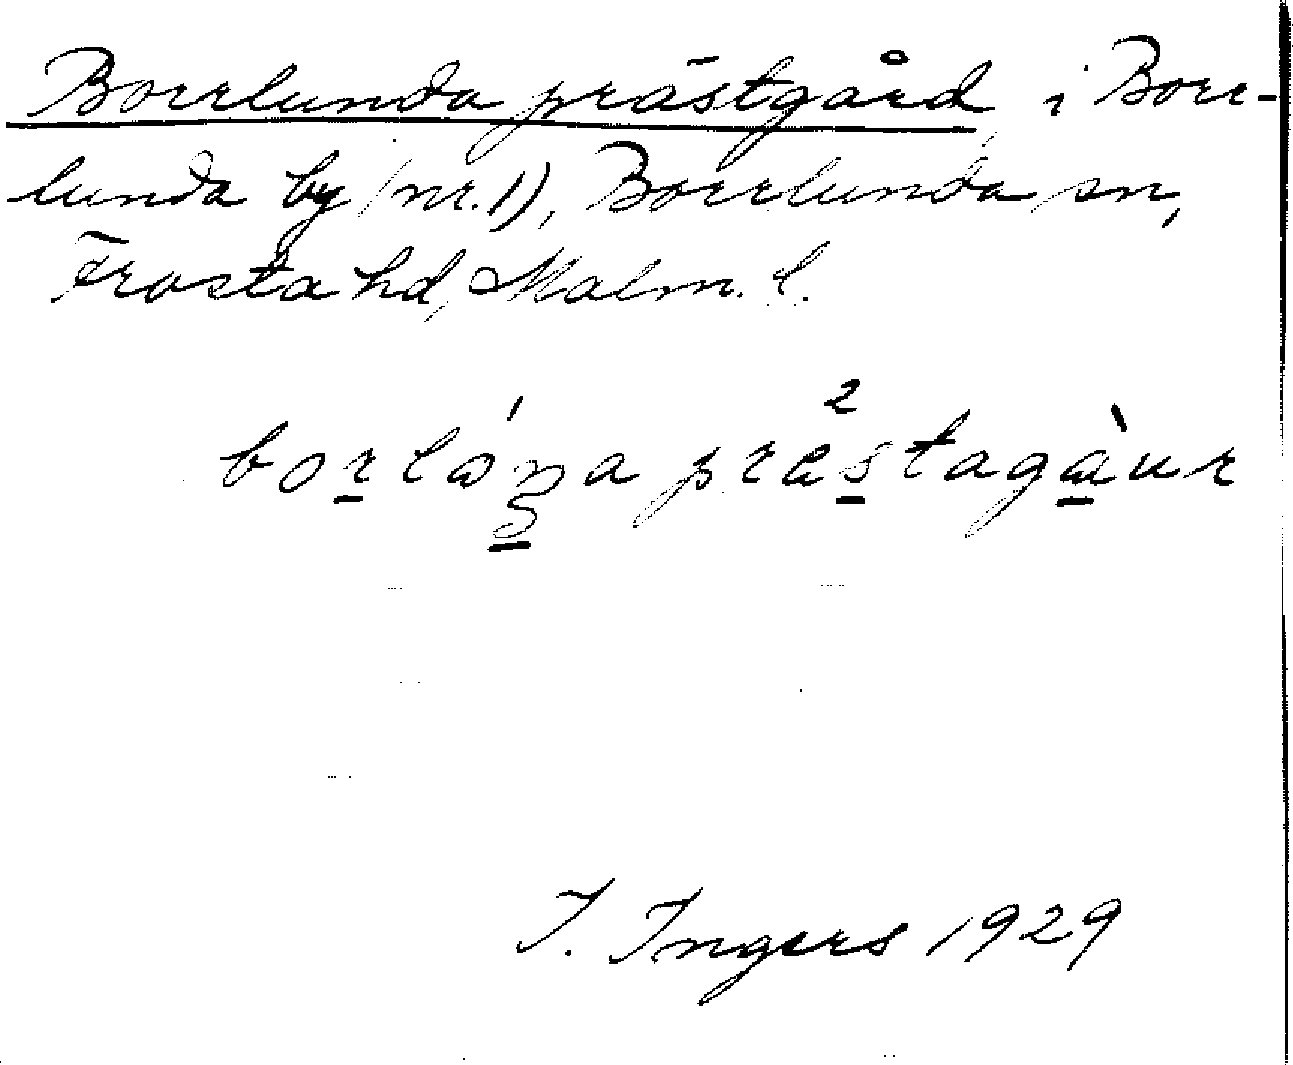 Borrlunda prästgård i Borr-
lunda by (nr. 1), Borrlunda sn,
Frosta hd, Malm. l.
borlóna prästagàur
I. Ingers 1929